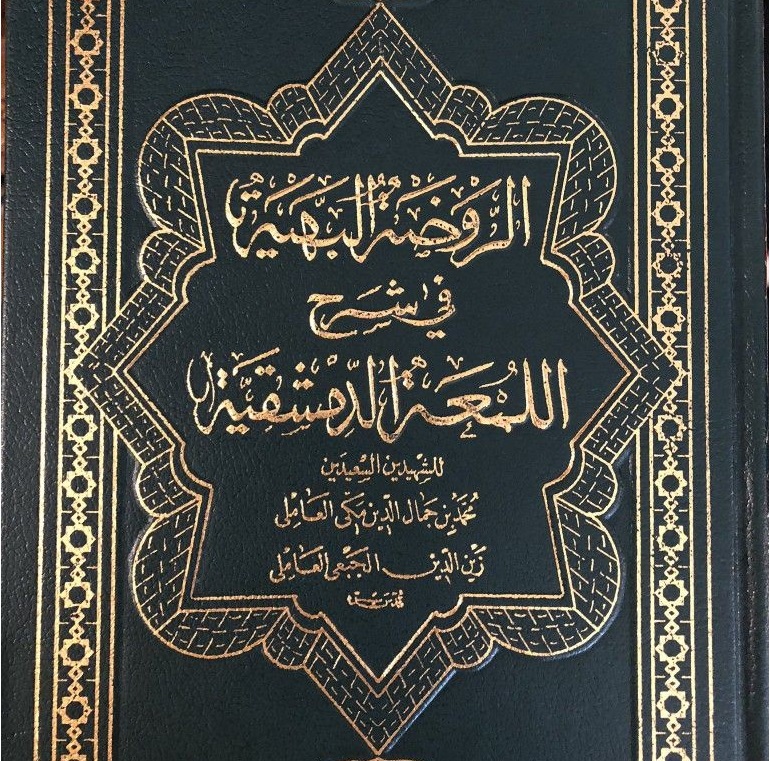 الرَّوضَةُ البَهيَّة
في شَرح
اللُمعَةِ الدِّمَشقِيَّة
للشهيدين السعيدين
مُحَمَّد بن جمال الدين مكي العاملي
زين الدين الجبعي العاملي